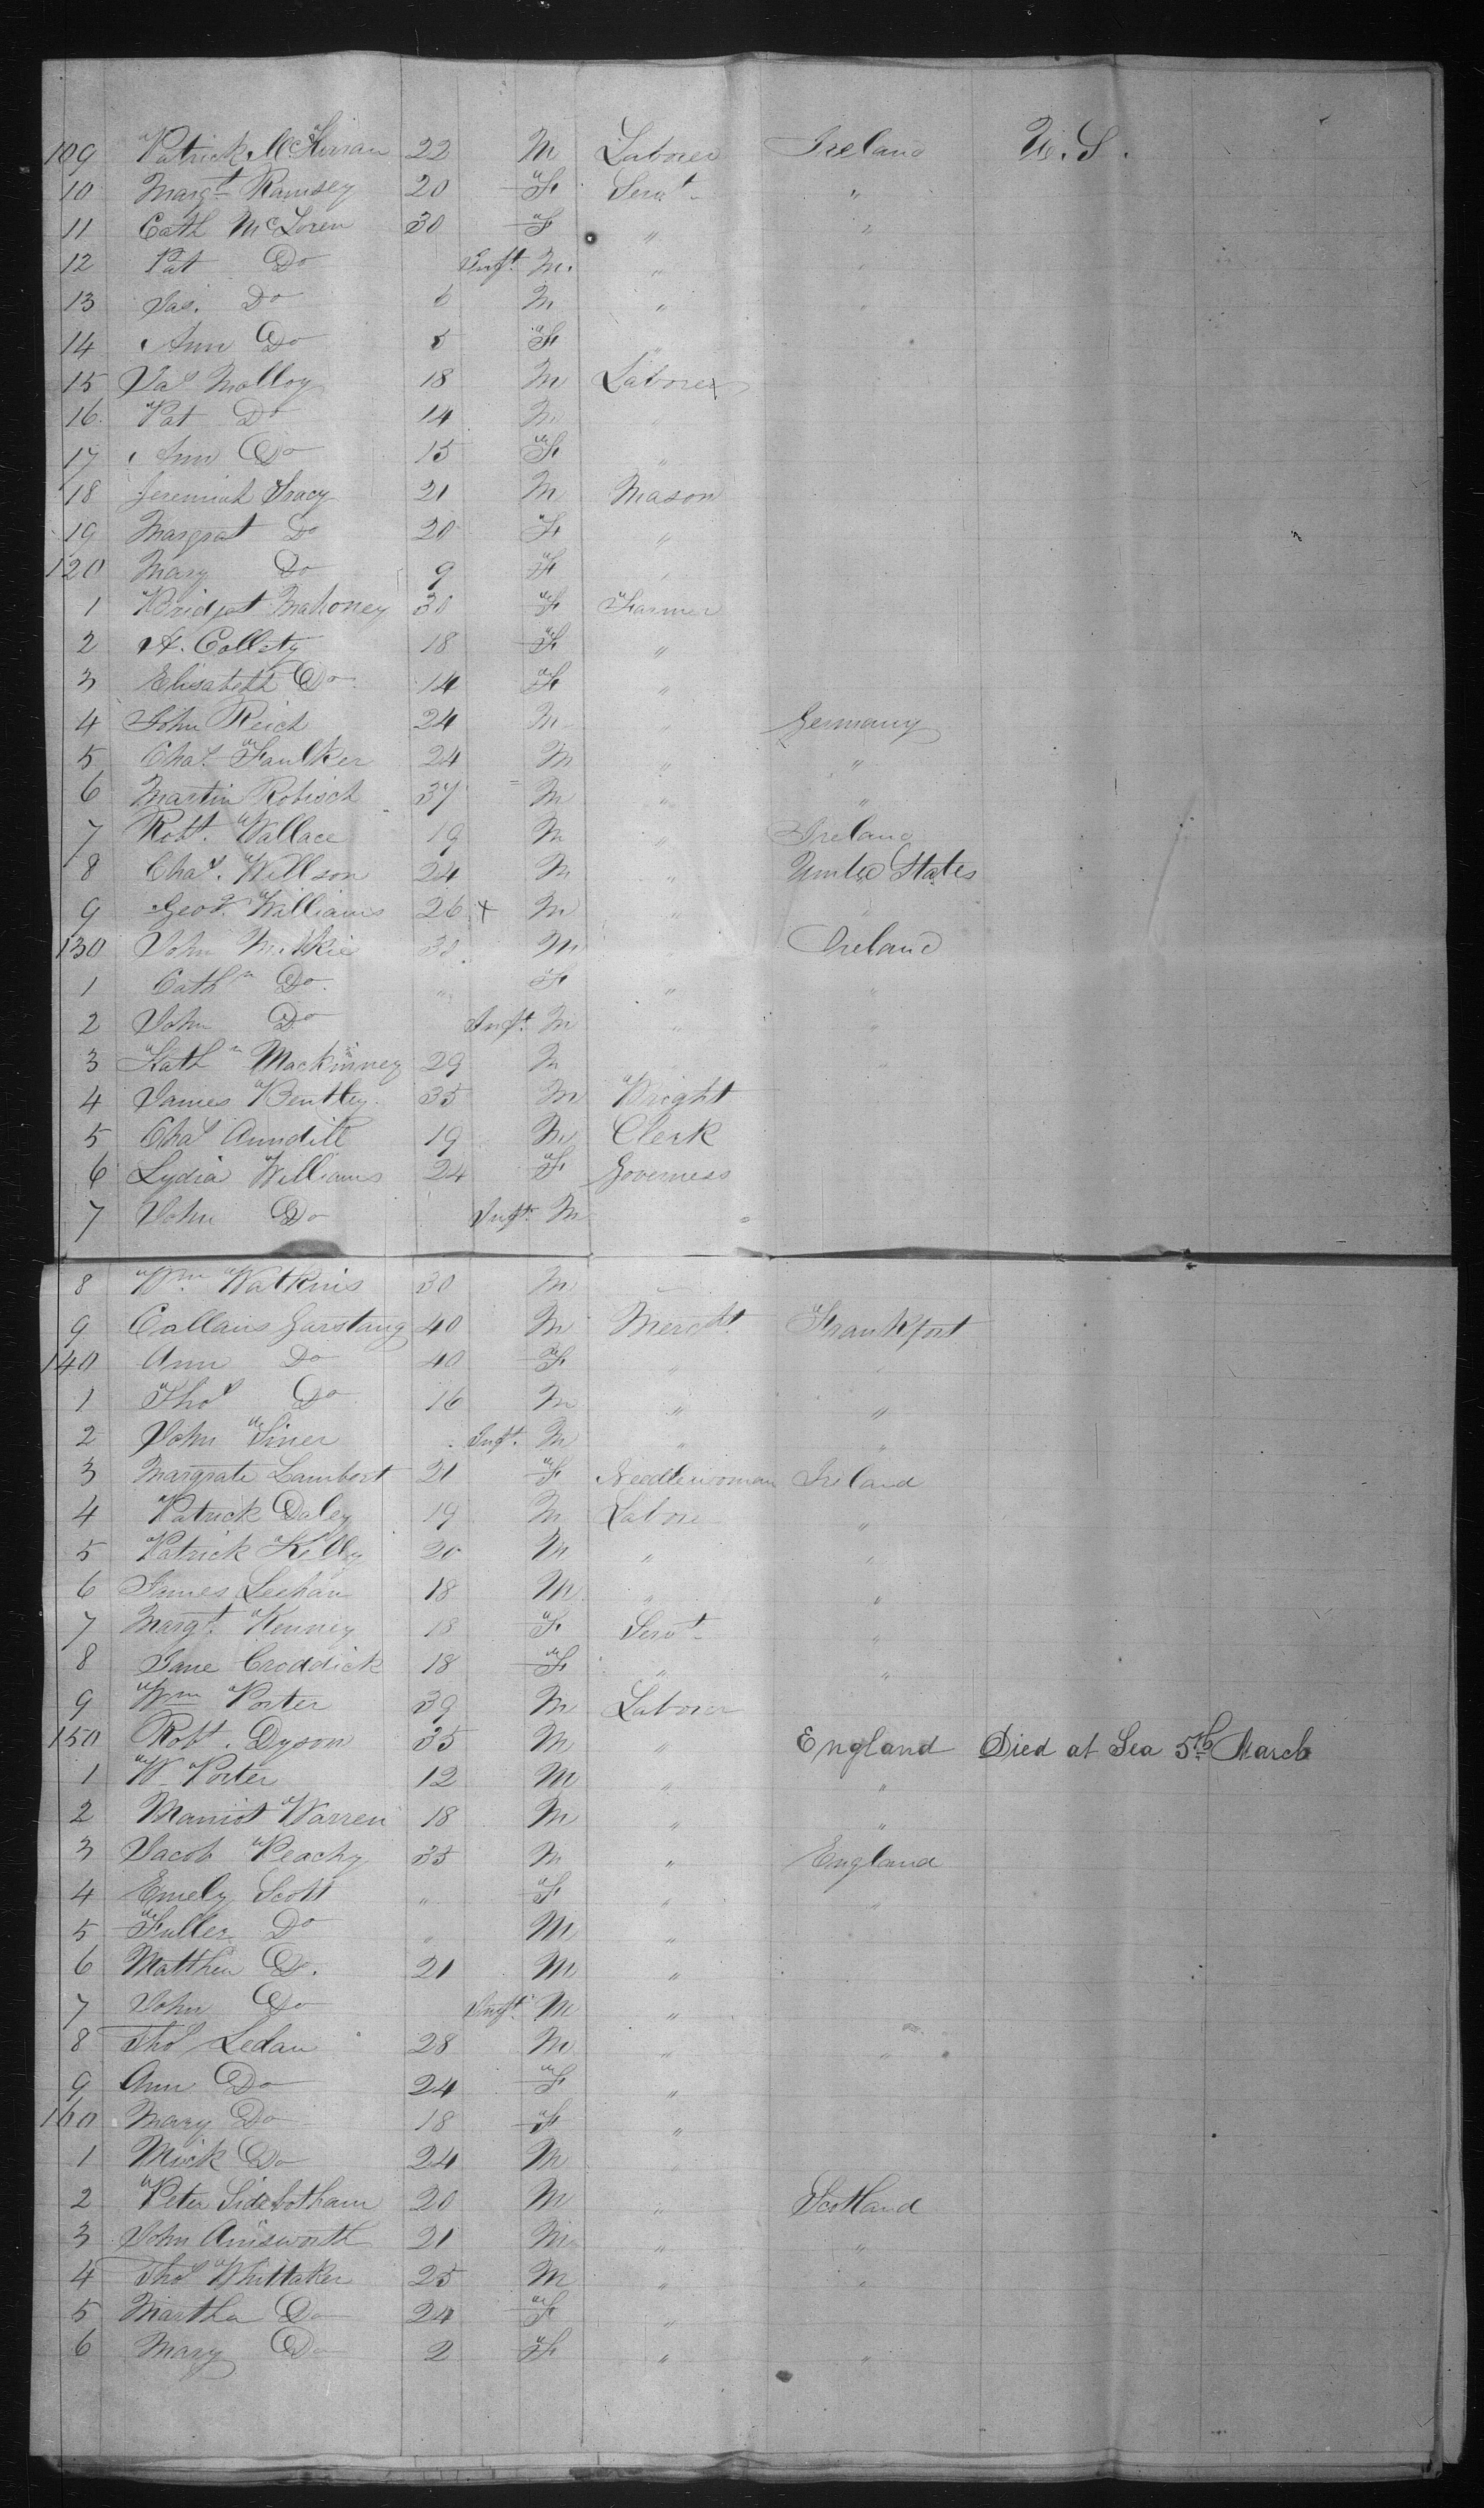 109 Patrick McKirnan 22 M Laborer Ireland U.S.
10 Margt Ramsey 20 F Servt "
11 Cath McLoren 30 F " "
12 Pat Do Inft. M. "
13 Jas. Do 6 M "
14 Ann Do 8 F "
15 Jas Molloy 18 M Laborer
16 Pat Do 14 M
17 Ann Do 15 F "
18 Jeremiah Tracy 21 M Mason
19 Margrat Do 20 F "
120 Mary Do 9 F "
1 Bridget Mahoney 30 F Farmer
2 A. Collety 18 F "
3 Elisabeth Do 14 F "
4 John Reich 24 M " Germany
5 Chas. Faulker 24 M " "
6 Martin Robisch 37 M " "
7 Robt. Wallace 19 M " Ireland
8 Chas. Willson 24 M " United States
9 Geog. Williams 26 x M " "
130 John 30 M " Ireland
1 Cathn Do. " F " "
2 John Do Inft. M " "
3 Kathn Mackinney 29 M "
4 James Bentley 35 M Wright
5 Chas Anndill 19 M Clerk
6 Lydia Williams 24 F Governess
7 John Do Inft. M
8 Wm. Watkins 30 M
9 Callans Garstang 40 M Mercht. Frankfort
140 Ann Do 40 F "
1 Thos Do 16 M " "
2 John Siner Inft. M " "
3 Margrate Lambert 21 F Needlewoman Ireland
4 Patrick Daley 19 M Labore "
5 Patrick Kelly 20 M " "
6 James Leehan 18 M " "
7 Margt. Kenney 18 F Servt "
8 Jane Croddick 18 F " "
9 Wm Porter 39 M Laborer
150 Robt. Dyson 35 M " England Died at Sea 5th March
1 W Porter 12 M " "
2 Warren 18 M " "
3 Jacob Peachy 35 M " England
4 Emely Scott " F " "
5 Fuller Do " M "
6 Matthew Do. 21 M "
7 John Do Inft. M "
8 Thos Ledan 28 M " "
9 Ann Do 24 F "
160 Mary Do 18 F "
1 Mick Do 24 M
2 Peter Sidebotham 20 M " Scotland
3 John Ainsworth 21 M " "
4 Thos Whittaker 25 M " "
5 Martha Do 24 F "
6 Mary Do 2 F " "